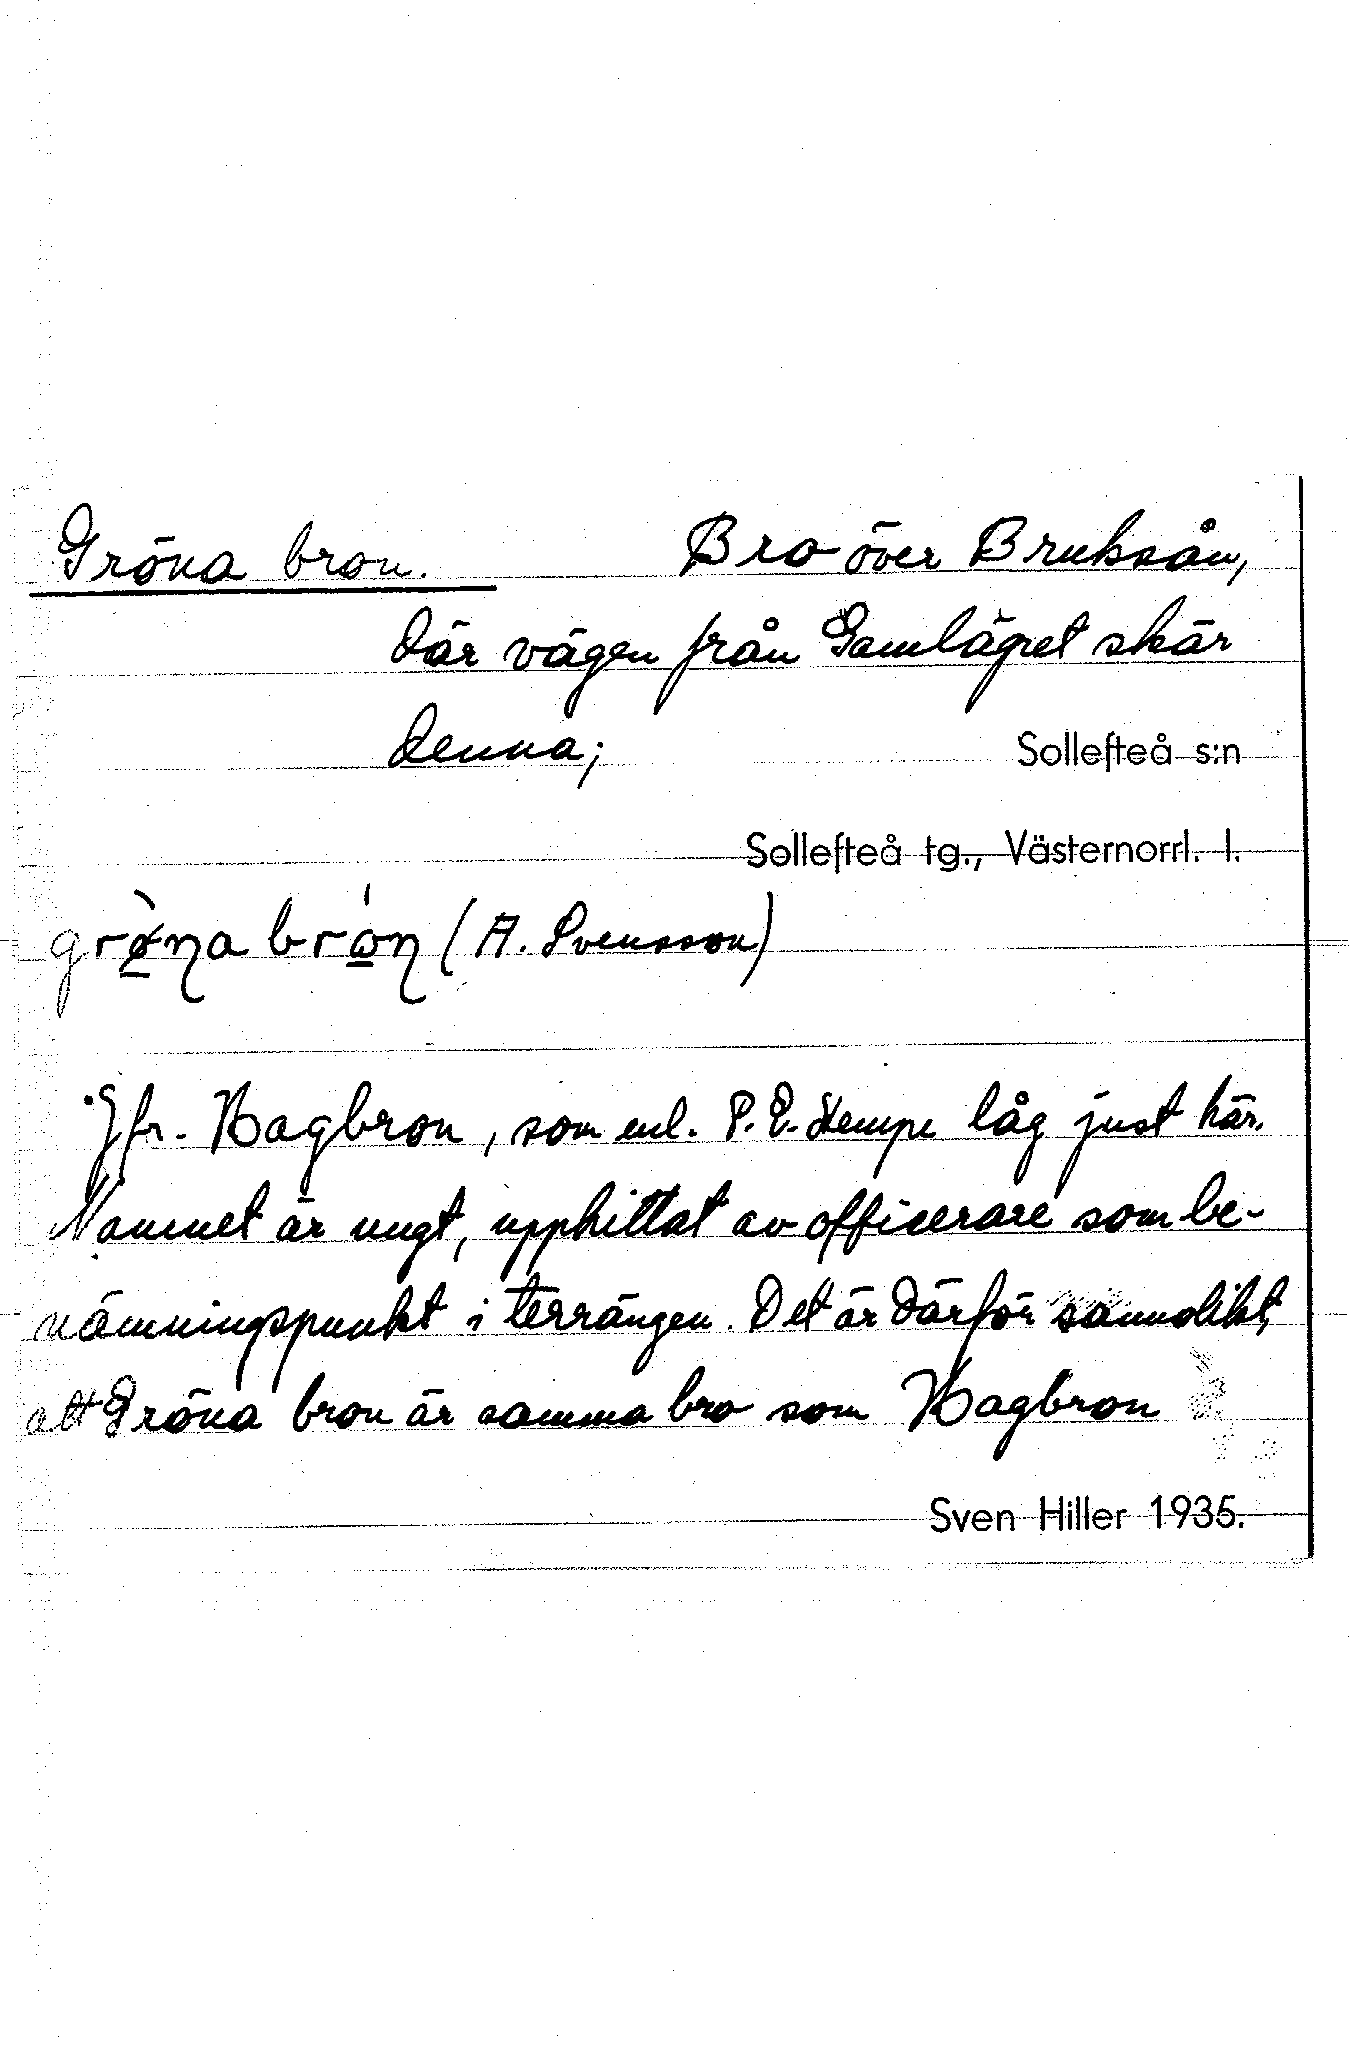 Gröna bron. Bro över Bruksån,
där vägen från Gamlägret skär
denna; Sollefteå s:n
Sollefteå tg., Västernorrl. l.
(A. Svensson)
Jfr. Hagbron, som enl. P. E. Kempe låg just här.
Namnet är ungt, upphittat av officerare som be-
nämningspunkt i terrängen. Det är därför sannolikt,
att Gröna bron är samma bro som Hagbron
Sven Hiller 1935.